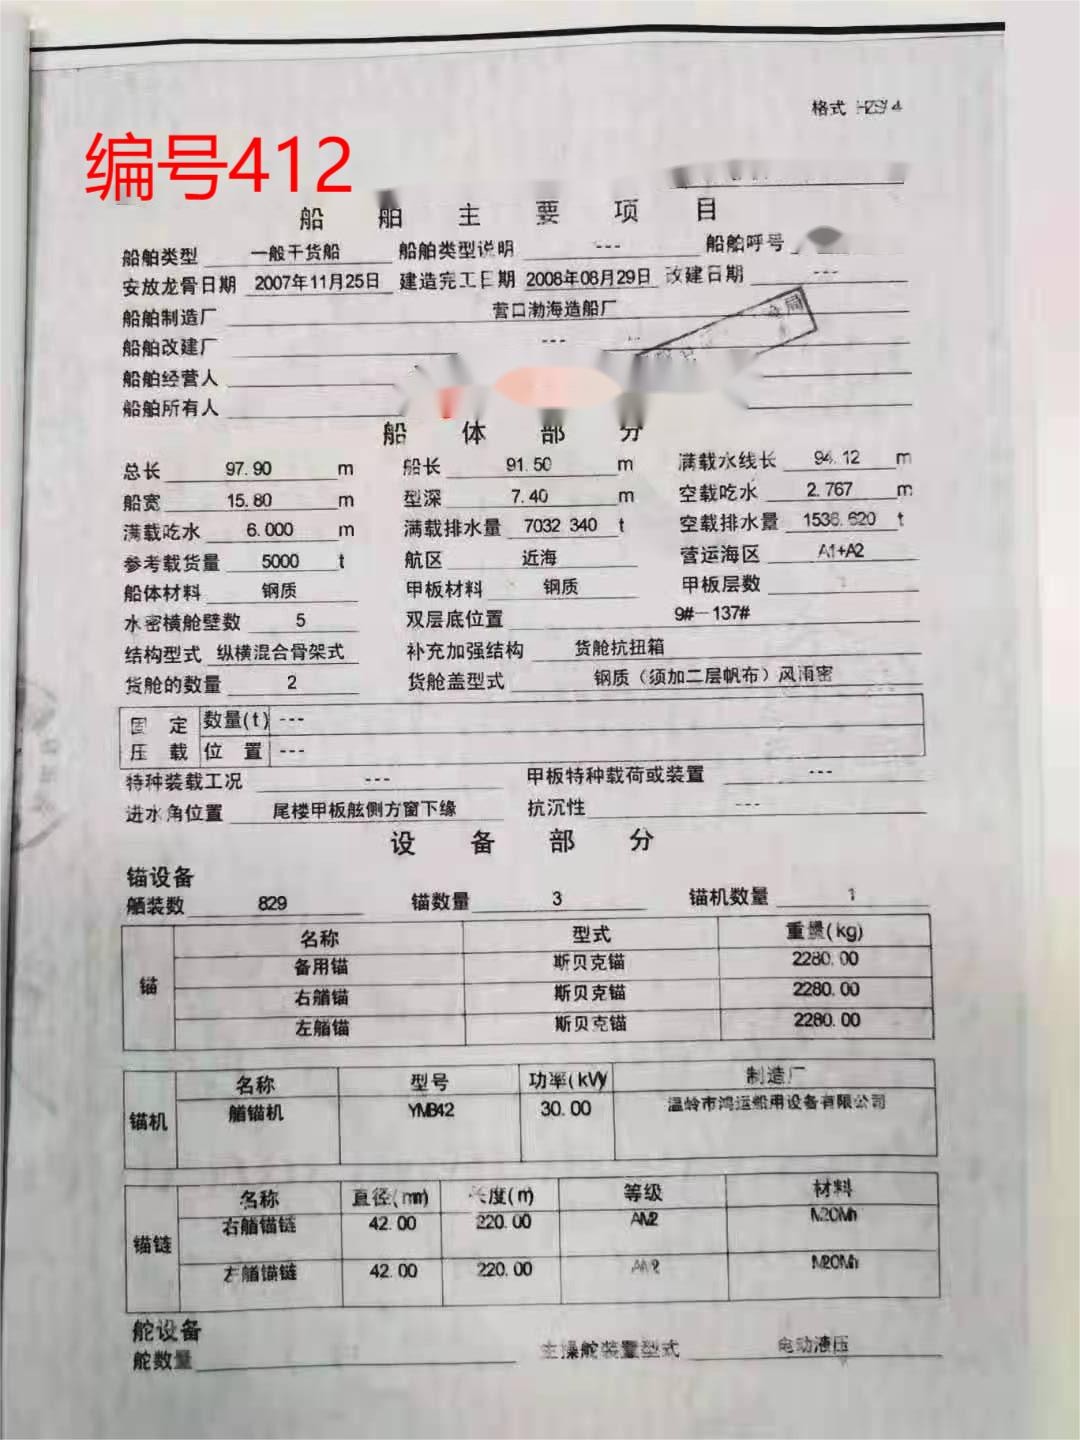 格式 HZS/4
编号412
船 舶 主 要 项 目
船舶类型 一般干货船 船舶类型说明 --- 船舶呼号
安放龙骨日期 2007年11月25日 建造完工日期 2008年08月29日 改建日期 ---
船舶制造厂 营口渤海造船厂
船舶改建厂 ---
船舶经营人
船舶所有人
船 体 部 分
总长 97.90 m 船长 91.50 m 满载水线长 94.12 m
船宽 15.80 m 型深 7.40 m 空载吃水 2.767 m
满载吃水 6.000 m 满载排水量 7032.340 t 空载排水量 1536.620 t
参考载货量 5000 t 航区 近海 营运海区 A1+A2
船体材料 钢质 甲板材料 钢质 甲板层数
水密横舱壁数 5 双层底位置 9#-137#
结构型式 纵横混合骨架式 补充加强结构 货舱抗扭箱
货舱的数量 2 货舱盖型式 钢质（须加二层帆布）风雨密
固 定 数量(t) ---
压 载 位 置 ---
特种装载工况 --- 甲板特种载荷或装置 ---
进水角位置 尾楼甲板舷侧方窗下缘 抗沉性 ---
设 备 部 分
锚设备
舾装数 829 锚数量 3 锚机数量 1
锚 名称 型式 重量(kg)
备用锚 斯贝克锚 2280.00
右艏锚 斯贝克锚 2280.00
左艏锚 斯贝克锚 2280.00
锚机 名称 型号 功率(kW) 制造厂
艏锚机 YMB42 30.00 温岭市鸿运船用设备有限公司
锚链 名称 直径(mm) 长度(m) 等级 材料
右艏锚链 42.00 220.00 AM2 M20Mn
左艏锚链 42.00 220.00 AM2 M20Mn
舵设备
舵数量 主操舵装置型式 电动液压